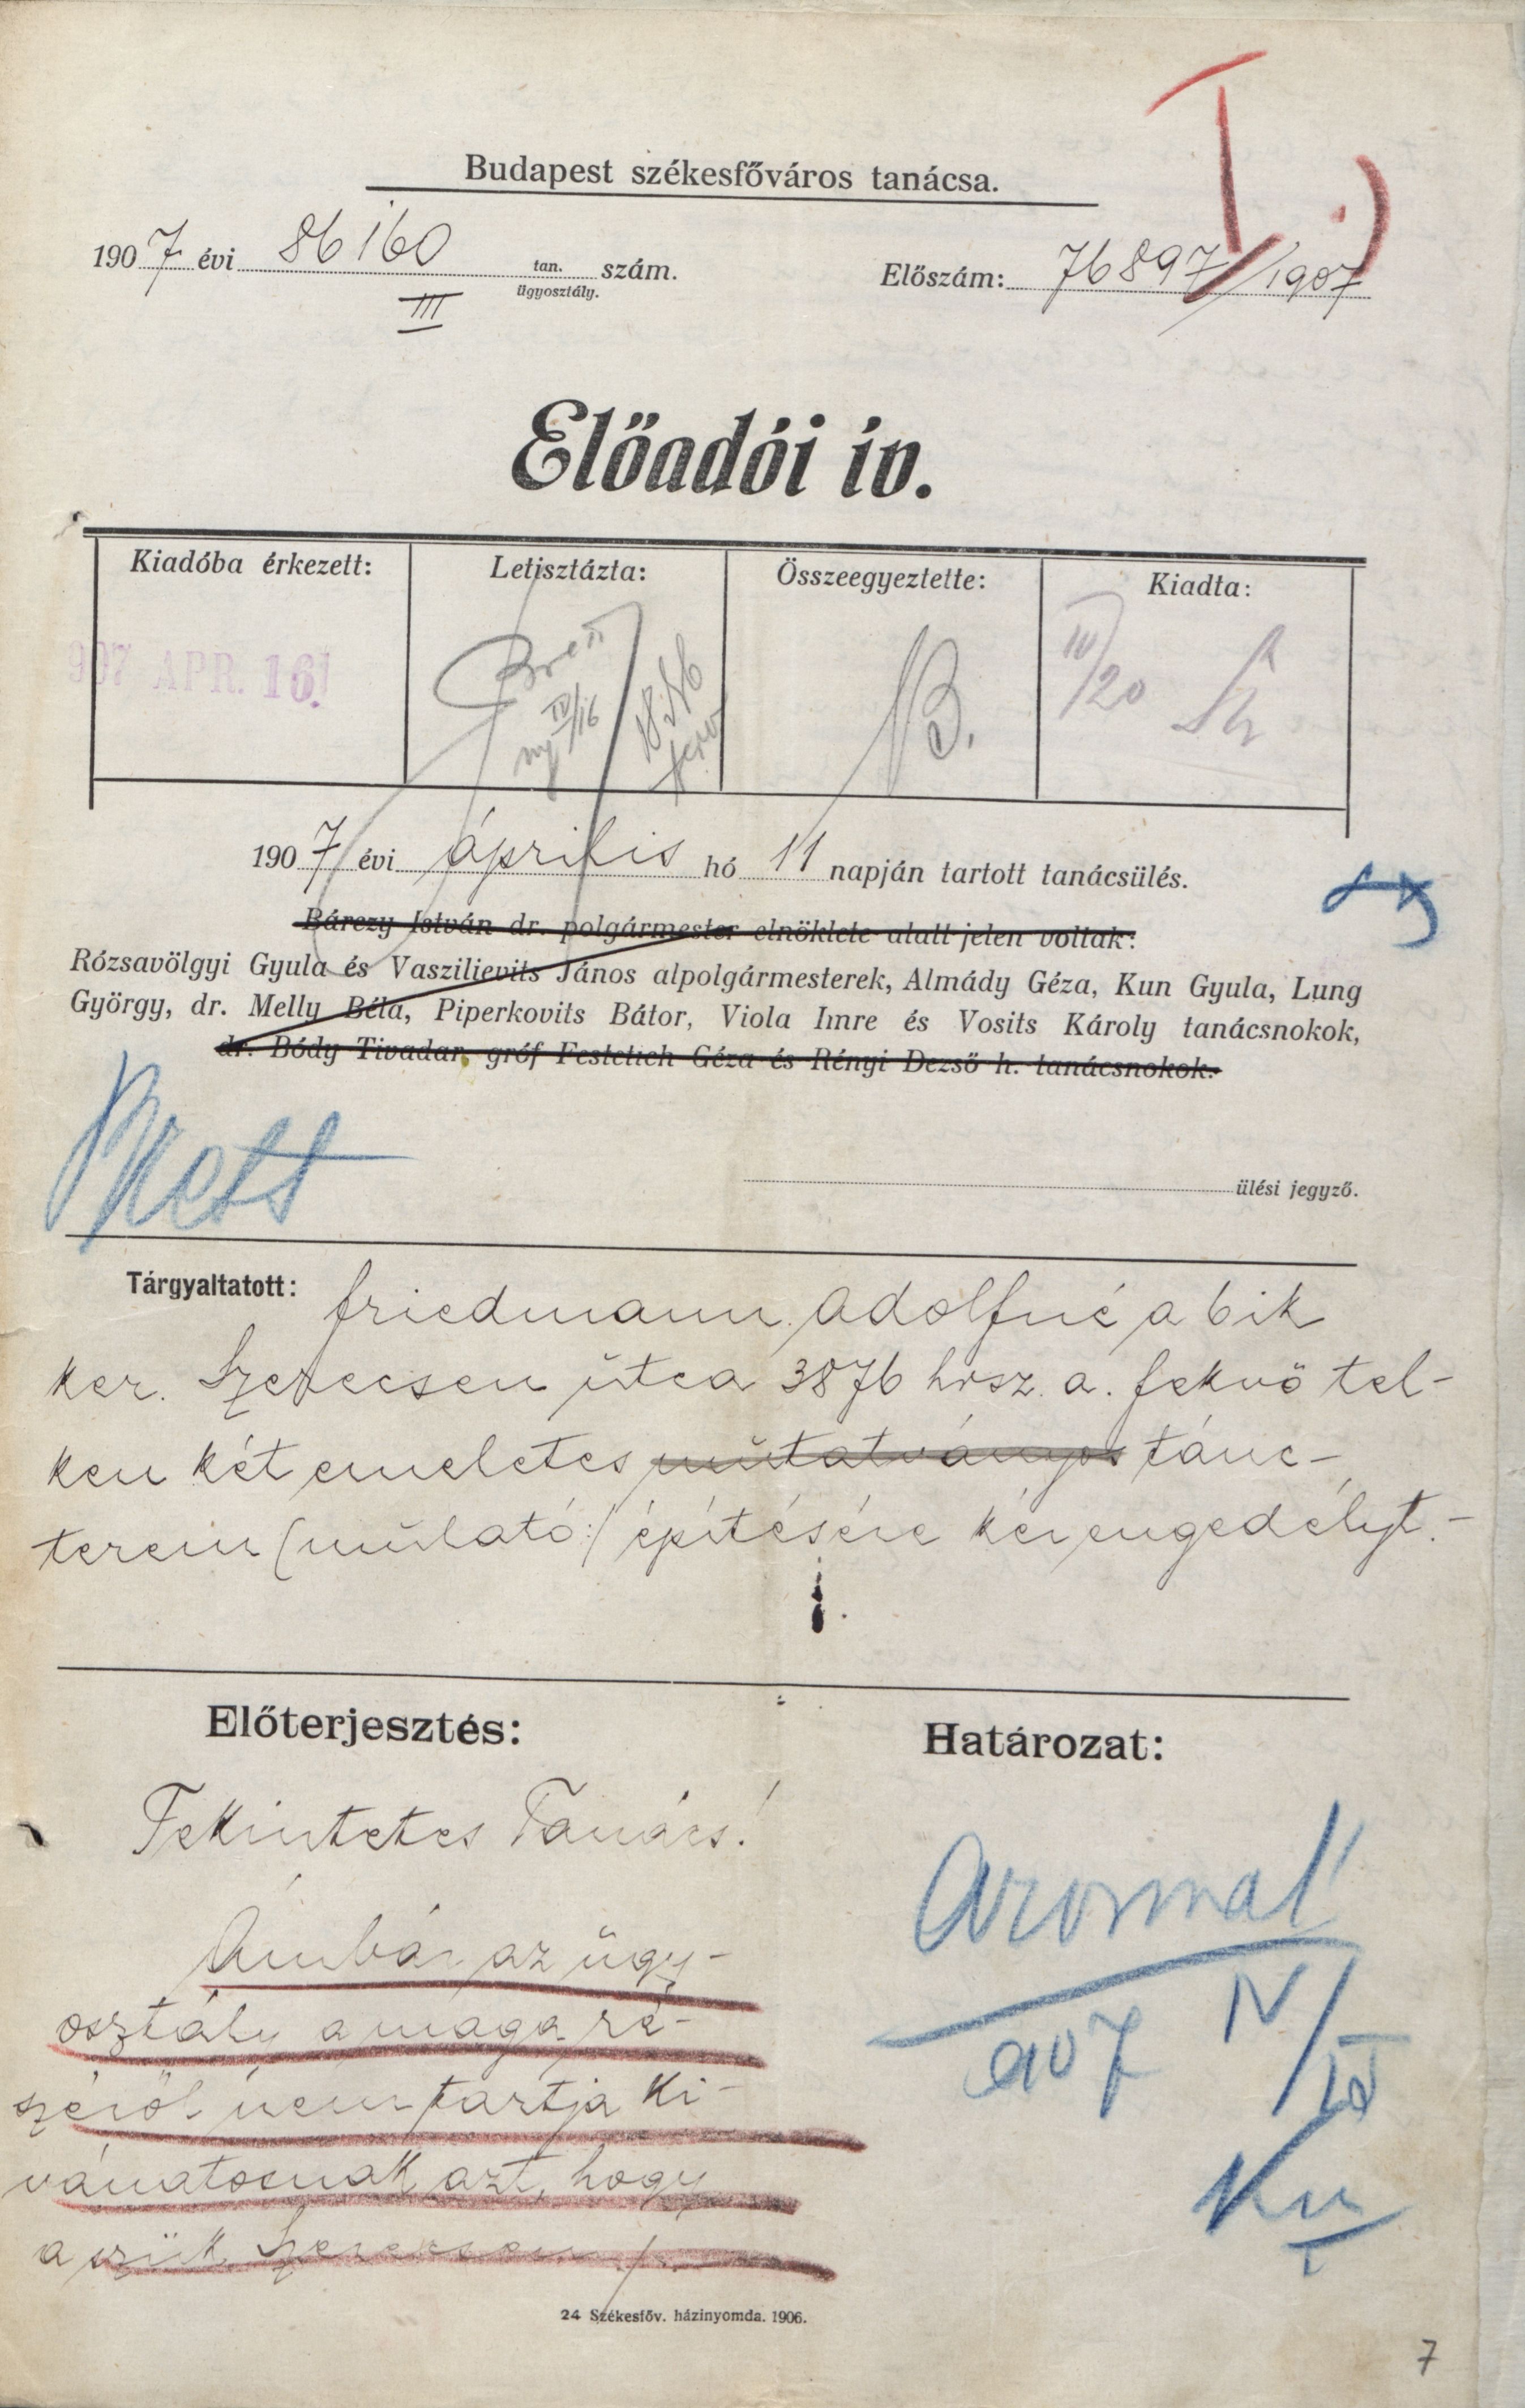 I.)
Budapest székesfőváros tanácsa.
1907 évi 86160 tan. ügyosztály. szám.
III
Előszám: 76897/1907
Előadói ív.
Kiadóba érkezett: Letisztázta: Összeegyeztette: Kiadta:
907 APR. 16.
IV/16
B.
IV/20
1907 évi április hó 11 napján tartott tanácsülés.
Bárczy István dr. polgármester elnöklete alatt jelen voltak:
Rózsavölgyi Gyula és Vaszilievits János alpolgármesterek, Almády Géza, Kun Gyula, Lung
György, dr. Melly Béla, Piperkovits Bátor, Viola Imre és Vosits Károly tanácsnokok,
dr. Bódy Tivadar, gróf Festetich Géza és Rényi Dezső h. tanácsnokok.
ülési jegyző.
Tárgyaltatott: Friedmann Adolfné a 6ik
ker. Szerecsen útca 3876 hrsz. a. fekvő tel-
ken két emeletes mutatványos táncz-
terem (mulató:) építésére kér engedélyt.-
Előterjesztés:
Határozat:
Tekintetes Tanács!
Ámbár az ügy-
osztály a maga ré-
széről nem tartja ki-
vánatosnak azt, hogy
a szük Szerecsen ./.
Azonnal
907 IV/15
Ku
24 Székesfőv. házinyomda. 1906.
7